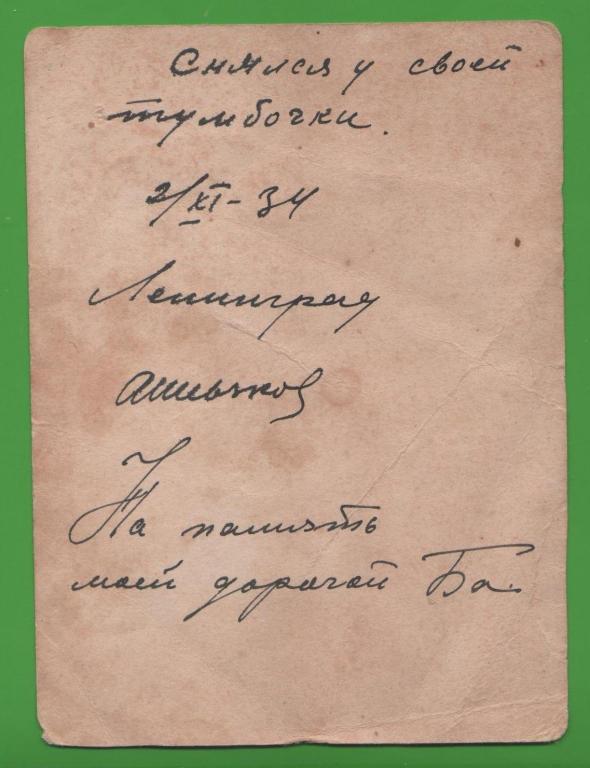 Снялся у своей
тумбочки.
2/XI-34
Ленинград
На память
моей дорогой Ба.